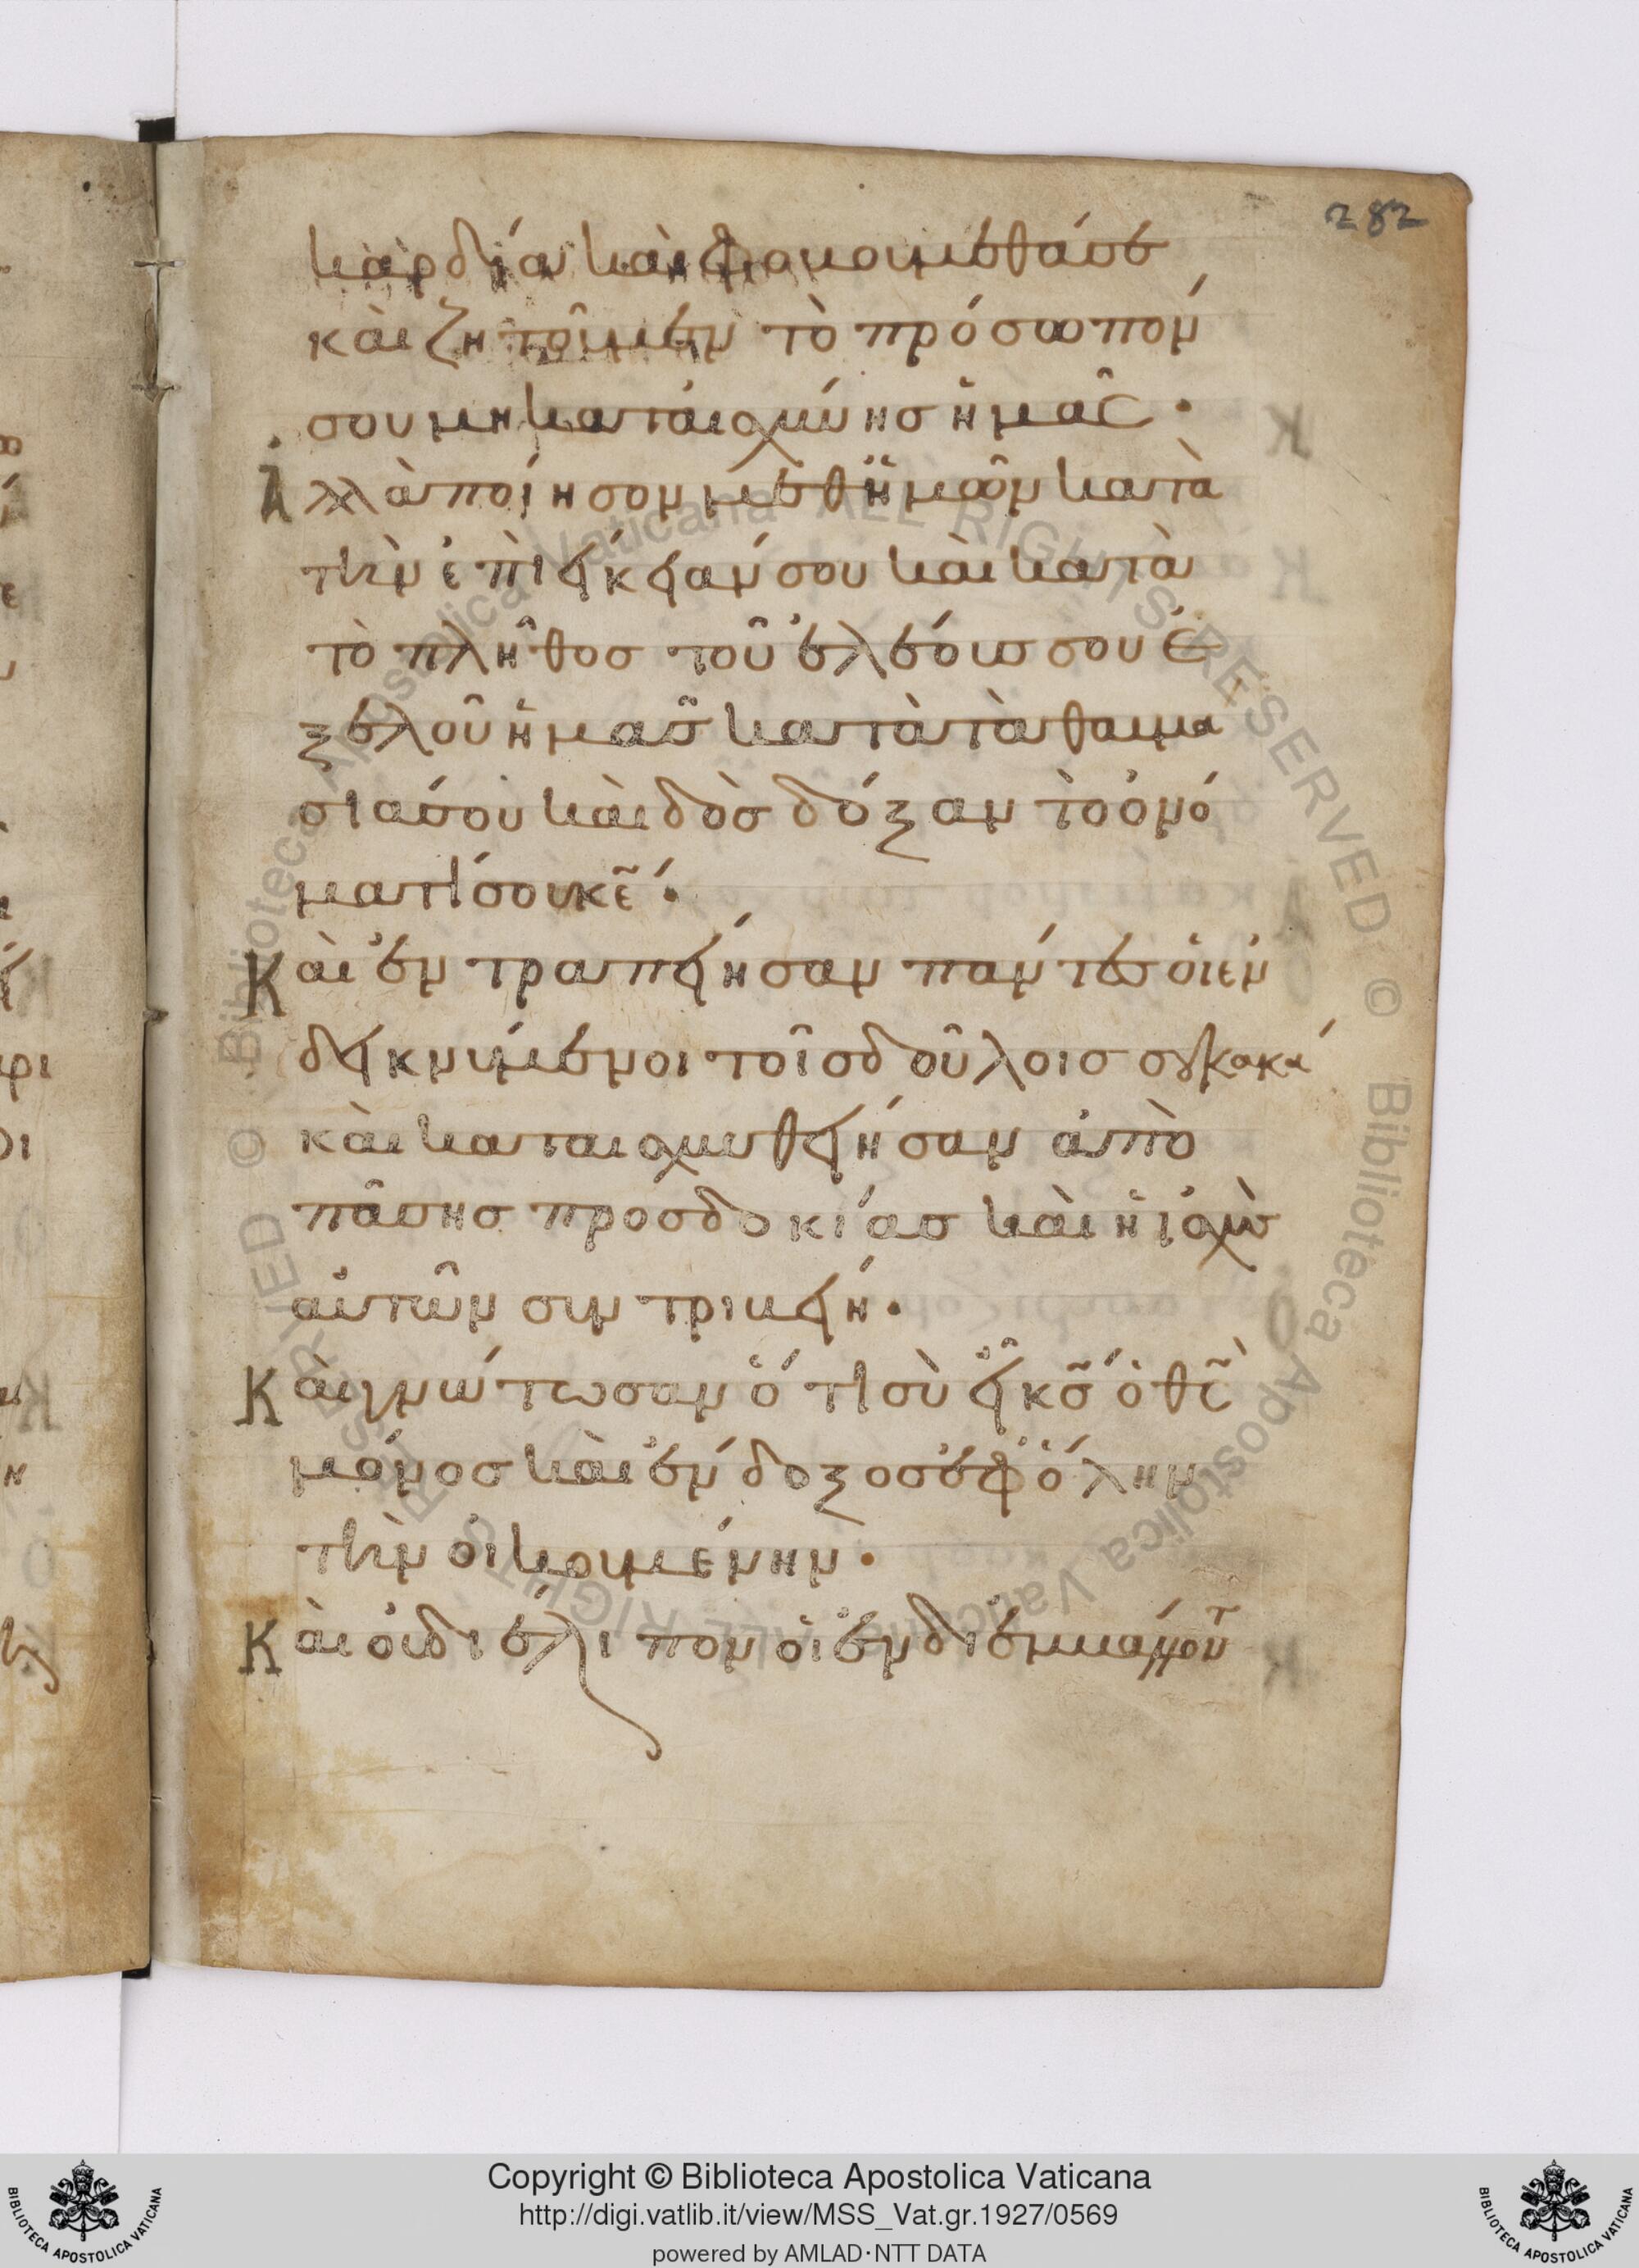 282
καρδία καὶ φοβούμεθά σε
καὶ ζητοῦμεν τὸ πρόσωπόν
σου μη καταισχύνησ ἡμᾶς·
Ἀλλὰ ποίησον μεθ ἡμῶν κατὰ
τὴν ἐπιείκειάν σου καὶ κατὰ
τὸ πλῆθοσ τοῦ ἐλέουσ σου ἐ
ξελοῦ ἡμᾶσ κατὰ τὰ θαυμα
σιά σου καὶ δὸσ δόξαν τὸ ὀνό
ματί σου κε·
Καὶ ἐντραπείησαν πάντεσ οἱ εν
δεικνύμενοι τοῖσ δούλοισ σου κακά
καὶ καταισχυνθείησαν ἀπὸ
πάσησ προσδοκίασ καὶ ἡ ἰσχὺσ
αὐτῶν συντριβείη·
Καὶ γνώτωσαν ὅτι σὺ εἶ κσ ὁ θς
μόνοσ καὶ ἔνδοξοσ ἐφ ὅλην
τὴν οἰκουμένην·
Καὶ οὐ διέλιπον οἱ ἐνδιέμμανου
Copyright © Biblioteca Apostolica Vaticana
http://digi.vatlib.it/view/MSS_Vat.gr.1927/0569
powered by AMLAD·NTT DATA
BIBLIOTECA APOSTOLICA VATICANA
BIBLIOTECA APOSTOLICA VATICANA